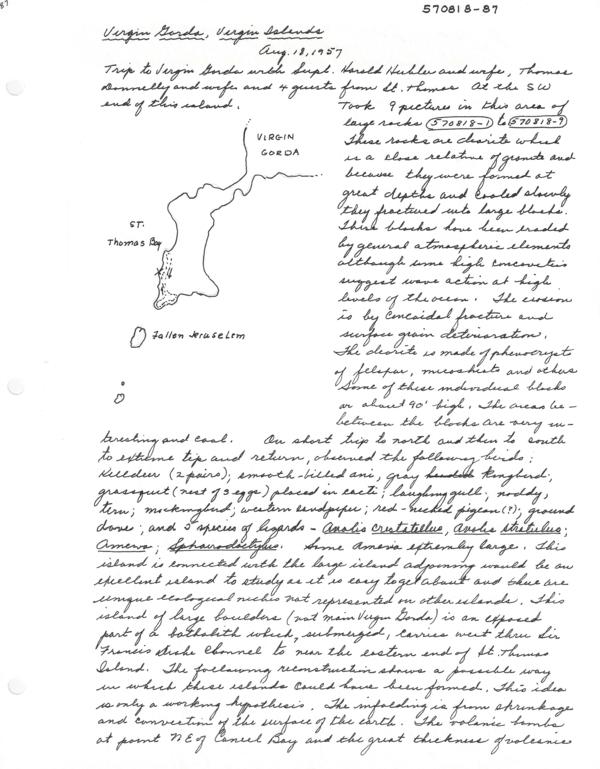 87
570818-87
Virgin Gorda, Virgin Islands
Aug. 18, 1957
Trip to Virgin Gorda with Supt. Harold Hubler and wife, Thomas
Donnelly and wife and 4 guests from St. Thomas At the SW
end of this island.
Took 9 pictures in this area of
large rocks (570818-1) to (570818-9)
These rocks are diorite which
is a close relative of granite and
because they were formed at
great depths and cooled slowly
they fractured into large blocks.
These blocks have been eroded
by general atmospheric elements
although some high concavities
suggest wave action at high
levels of the ocean. The erosion
is by concoidal fracture and
surface grain deterioration.
The diorite is made of phenocrysts
of felspar, micoshists and others
Some of these individual blocks
are about 90' high. The areas be-
between the blocks are very in-
VIRGIN
GORDA
ST.
Thomas Bay
Fallen Jeruselem
teresting and cool. On short trip to north and then to south
to extreme tip and return, observed the following birds;
Killdeer (2 pairs); smooth-billed ani, gray kingbird;
grassquit (nest of 3 eggs) placed in cacti; laughing gull; noddy,
tern; mockingbird; western sandpiper; red-necked pigeon (?); ground
dove; and species of lizards - Anolis cristatellus, Anolis stratulus;
Ameiva; Sphaerodactylus. Some Ameiva extremly large. This
island is connected with the large island adjoining would be an
excellent island to study as it is easy to get about and there are
unique ecological niches not represented on other islands. This
island of large boulders (not main Virgin Gorda) is an exposed
part of a batholith which, submerged, carries west thru Sir
Francis Drake Channel to near the eastern end of St. Thomas
Island. The following reconstruction shows a possible way
in which these islands could have been formed. This idea
is only a working hypothesis. The infolding is from shrinkage
and convection of the surface of the earth. The volanic bombs
at point NE of Caneel Bay and the great thickness of volcanic